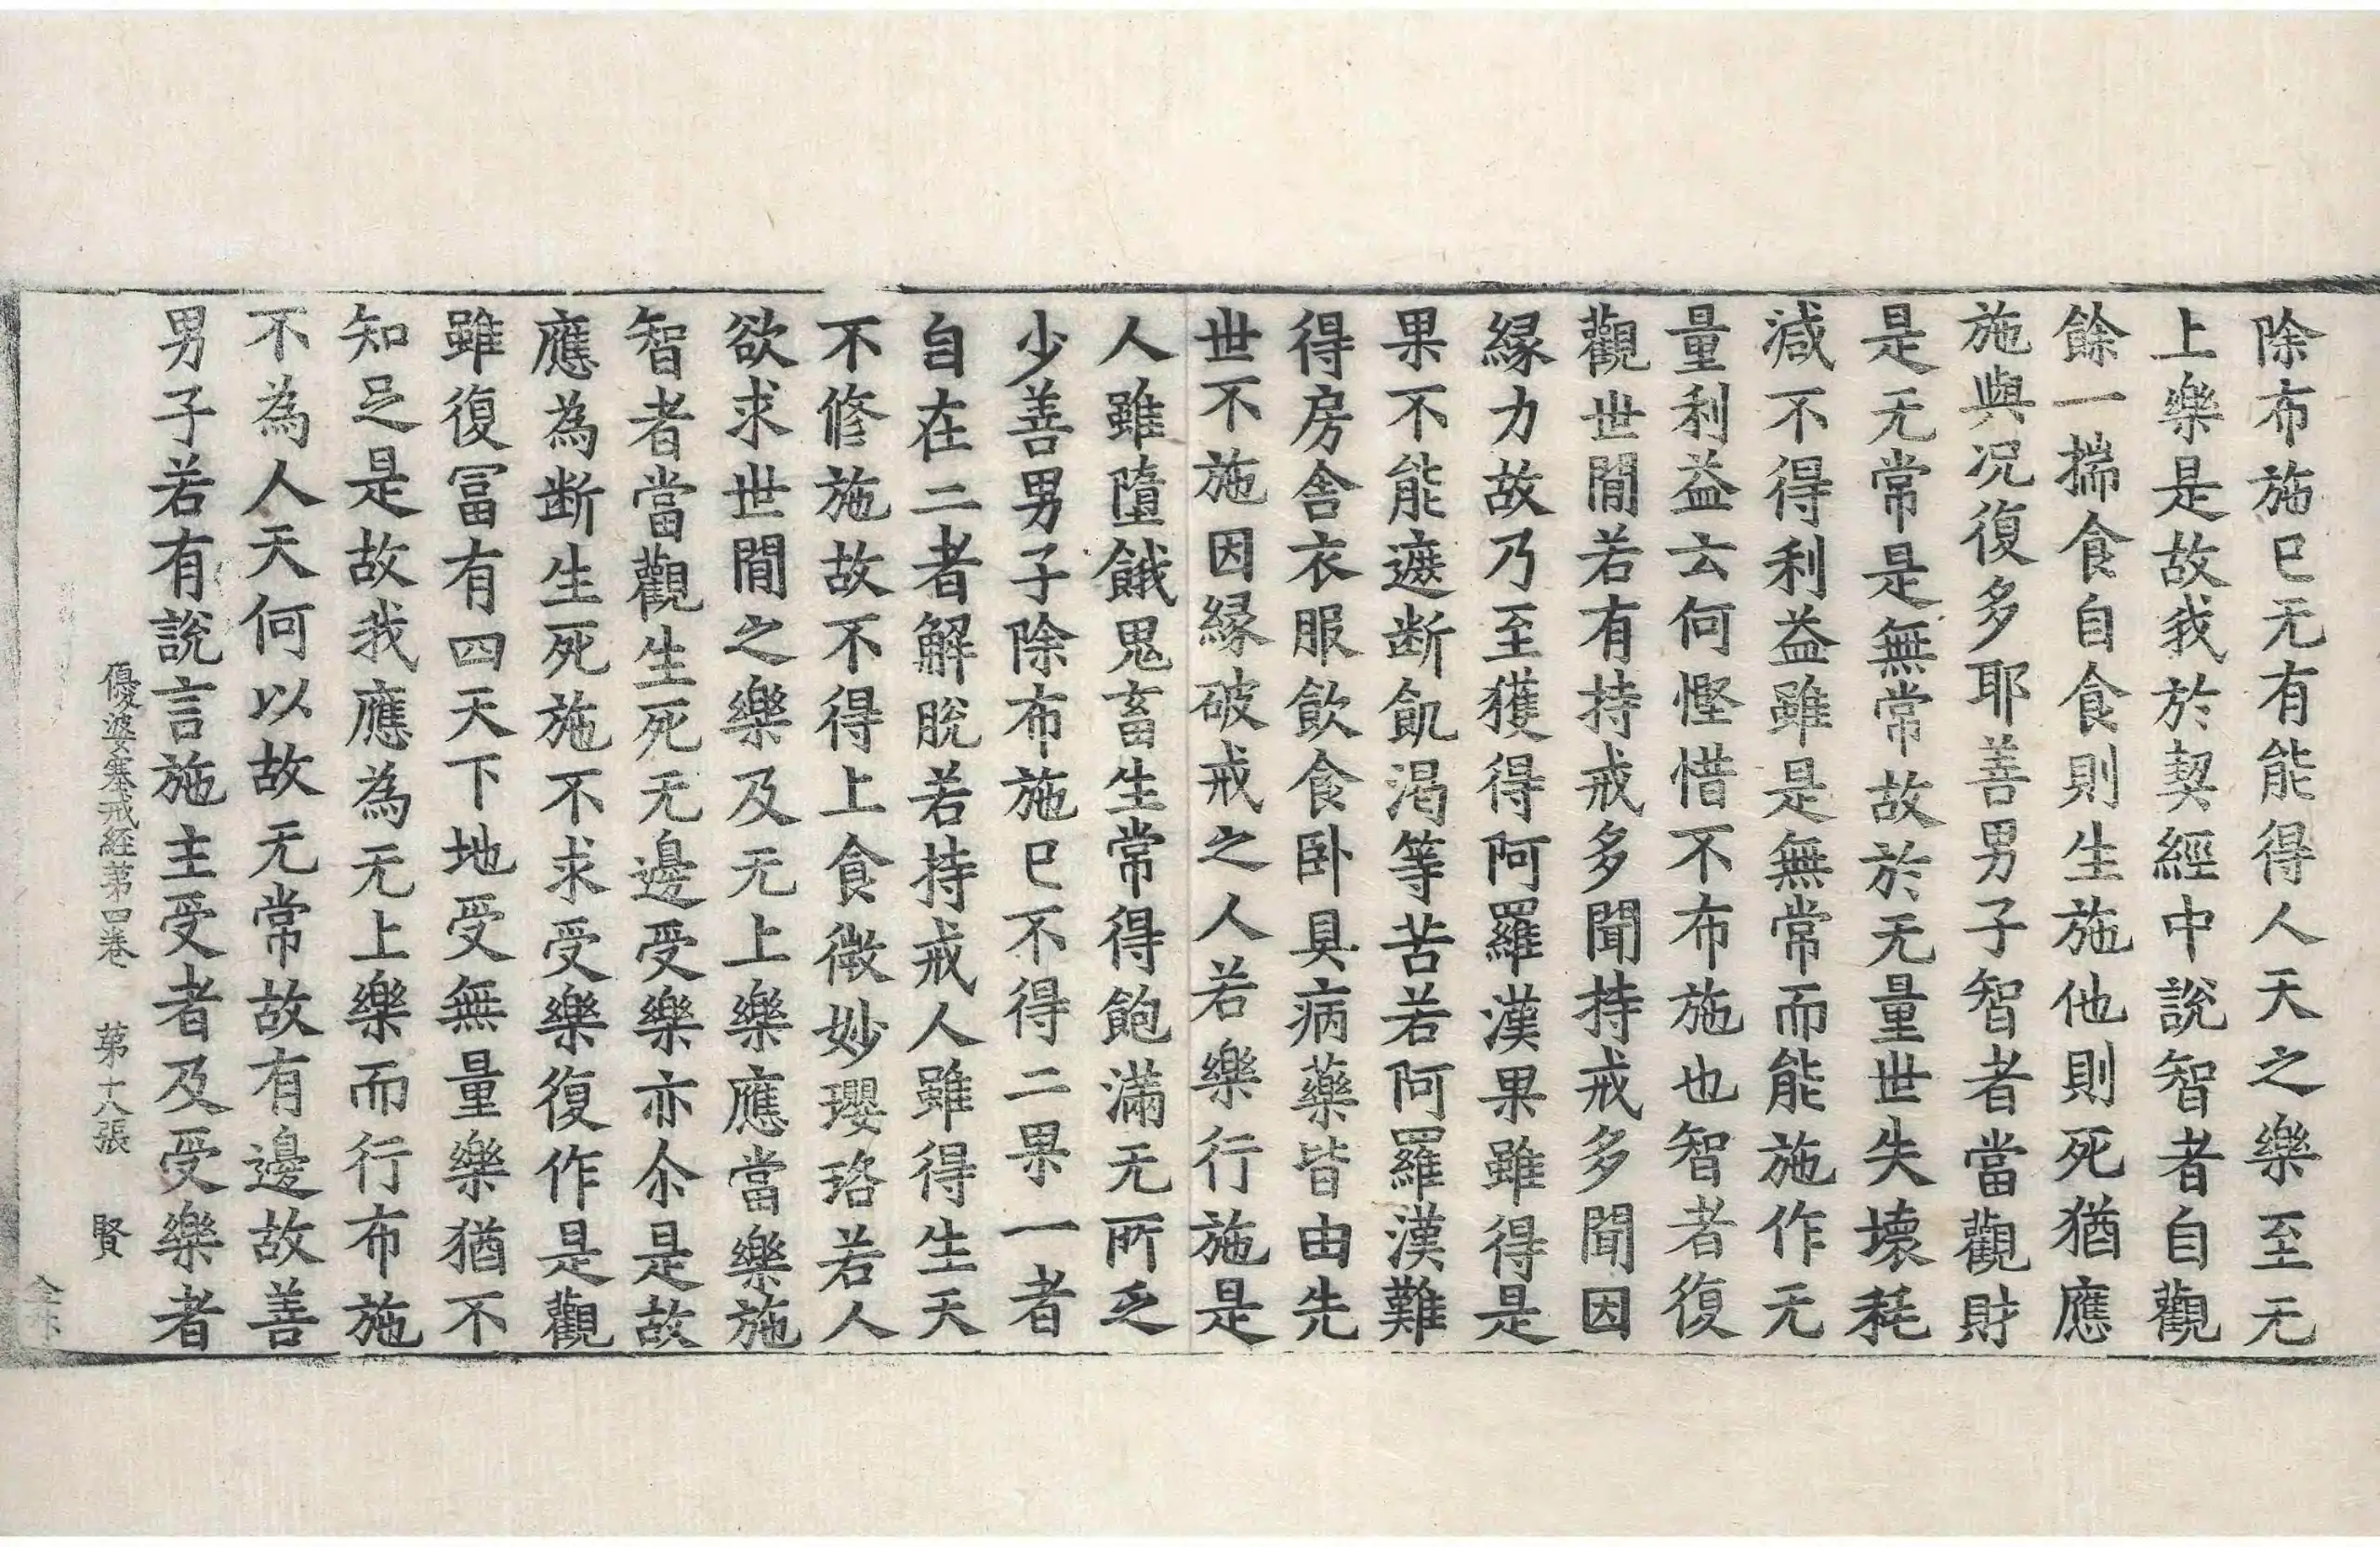 除布施已无有能得人天之樂至无
上樂是故我於契經中說智者自觀
餘一揣食自食則生施他則死猶應
施與况復多耶善男子智者當觀財
是无常是無常故於无量世失壊耗
減不得利益雖是無常而能施作无
量利益云何慳惜不布施也智者復
觀世閒若有持戒多聞持戒多聞因
縁力故乃至獲得阿羅漢果雖得是
果不能遮断飢渴等苦若阿羅漢難
得房舍衣服飲食卧具病藥皆由先
世不施因縁破戒之人若樂行施是
人雖墮餓鬼畜生常得飽滿无所乏
少善男子除布施已不得二果一者
自在二者解脫若持戒人雖得生天
不修施故不得上食微妙瓔珞若人
欲求世閒之樂及无上樂應當樂施
智者當觀生死无邊受樂亦尒是故
應為断生死施不求受樂復作是觀
雖復冨有四天下地受無量樂猶不
知足是故我應為无上樂而行布施
不為人天何以故无常故有邊故善
男子若有說言施主受者及受樂者
優婆塞戒経苐四巻 苐十八張 賢